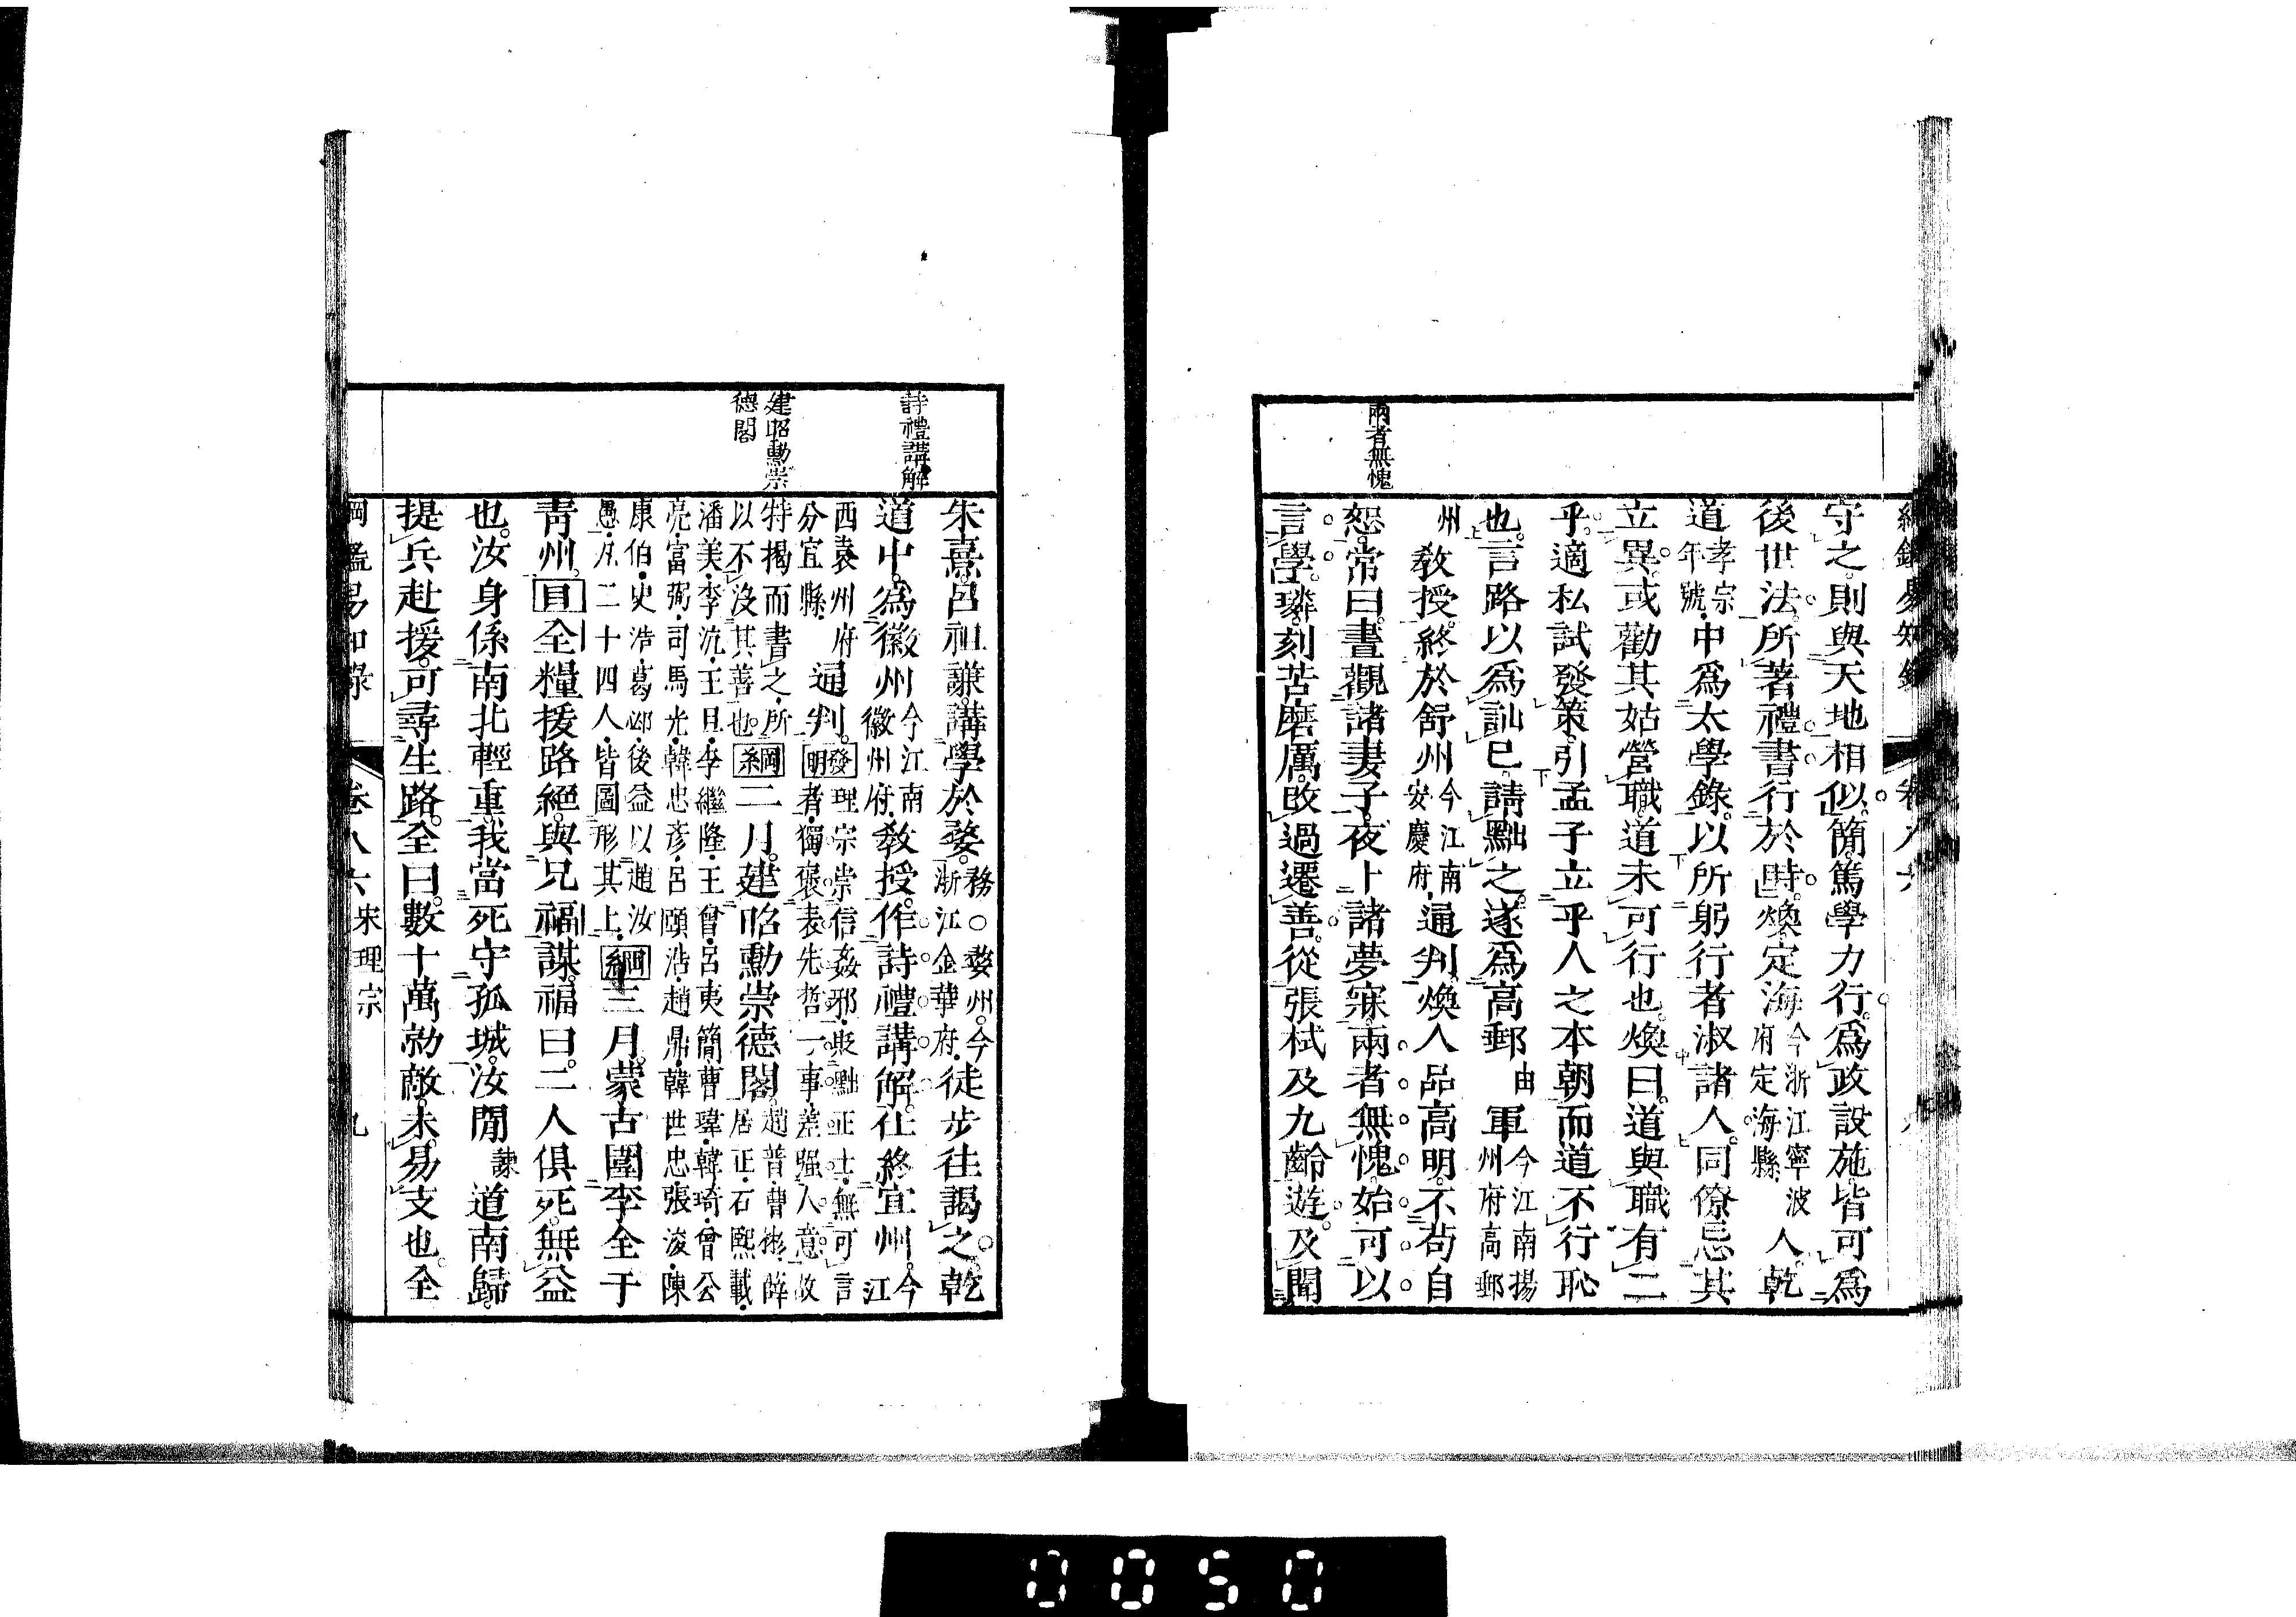 兩者無愧
守之則與天地相似簡篤學力行爲政設施皆可爲
後世法所著禮書行於時煥定海今浙江寧波府定海縣人乾
道孝宗年號中爲太學錄以所躬行者淑諸人同僚忌其
立異或勸其姑營職道未可行也煥曰道與職有二
乎適私試發策引孟子立乎人之本朝而道不行恥
也言路以爲訕已請黜之遂爲高郵由軍今江南揚州府高郵
州教授終於舒州今江南安慶府通判煥人品高明不苟自
恕常曰晝觀諸妻子夜卜諸夢寐兩者無愧始可以
言學璘刻苦磨厲改過遷善從張栻及九齡遊及聞
詩禮講解
建昭勳崇
德閣
朱熹呂祖謙講學於婺務○婺州今浙江金華府徒步往謁之乾
道中爲徽州今江南徽州府教授作詩禮講解仕終宜州今江
西袁州府分宜縣通判發明理宗崇信姦邪貶黜正士無可言者獨褒表先哲一事差強人意故
特揭而書之所以不沒其善也綱二月建昭勳崇德閣趙普曹彬薛居正石熙載
潘美李沆王旦李繼隆王曾呂夷簡曹瑋韓琦曾公亮富弼司馬光韓忠彥呂頤浩趙鼎韓世忠張浚陳
康伯史浩葛邲後益以趙汝愚凡二十四人皆圖形其上綱三月蒙古圍李全于
青州目全糧援路絕與兄福謀福曰二人俱死無益
也汝身係南北輕重我當死守孤城汝閒諫道南歸
提兵赴援可尋生路全曰數十萬勍敵未易支也全
綱鑑易知錄 卷八六 宋理宗 九
0050